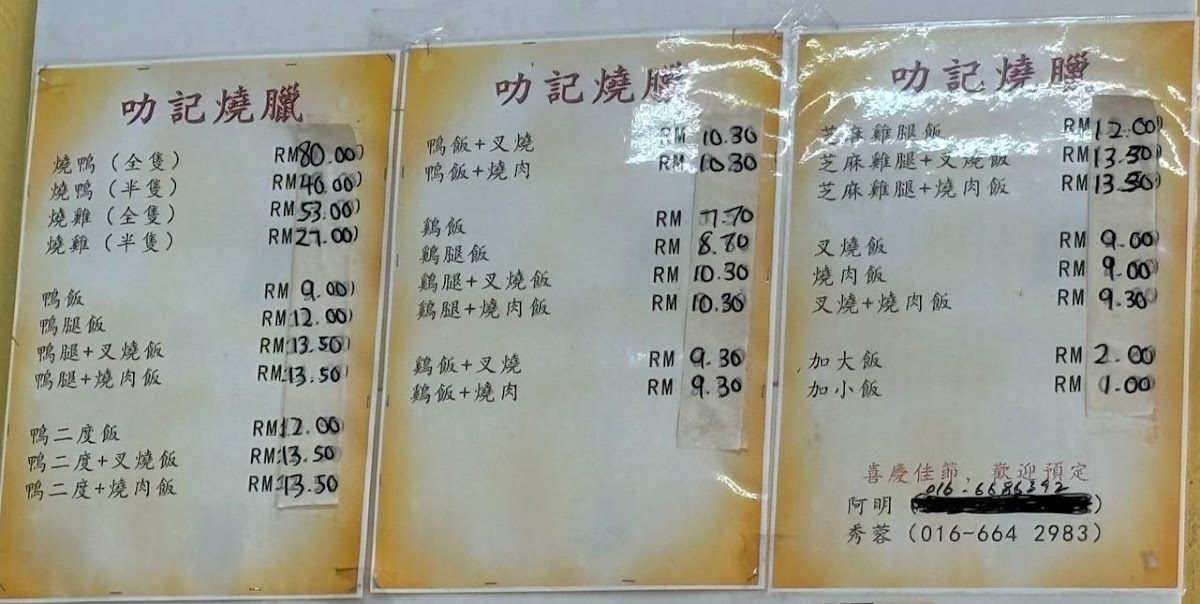 叻記燒臘
燒鴨（全隻） RM80.00
燒鴨（半隻） RM40.00
燒雞（全隻） RM53.00
燒雞（半隻） RM27.00
鴨飯 RM 9.00
鴨腿飯 RM12.00
鴨腿+叉燒飯 RM13.50
鴨腿+燒肉飯 RM13.50
鴨二度飯 RM12.00
鴨二度+叉燒飯 RM13.50
鴨二度+燒肉飯 RM13.50
叻記燒臘
鴨飯+叉燒 RM 10.30
鴨飯+燒肉 RM 10.30
鷄飯 RM 7.70
鷄腿飯 RM 8.70
鷄腿+叉燒飯 RM 10.30
鷄腿+燒肉飯 RM 10.30
鷄飯+叉燒 RM 9.30
鷄飯+燒肉 RM 9.30
叻記燒臘
芝麻雞腿飯 RM12.00
芝麻雞腿+叉燒飯 RM13.30
芝麻雞腿+燒肉飯 RM13.30
叉燒飯 RM 9.00
燒肉飯 RM 9.00
叉燒+燒肉飯 RM 9.30
加大飯 RM 2.00
加小飯 RM 1.00
喜慶佳節，歡迎預定
阿明 (016-6686392)
秀蓉 (016-664 2983)